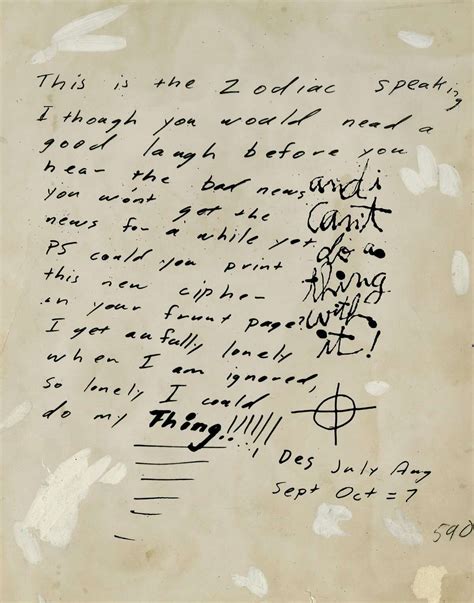 This is the Zodiac speaking
I though you would need a
good laugh before you
hear the bad news
you won't get the
news for a while yet
PS could you print
this new cipher
on your frunt page?
I get awfully lonely
when I am ignored,
so lonely I could
do my Thing!!!!!!
and i
can't
do a
thing
with
it!
Des July Aug
Sept Oct = 7
590